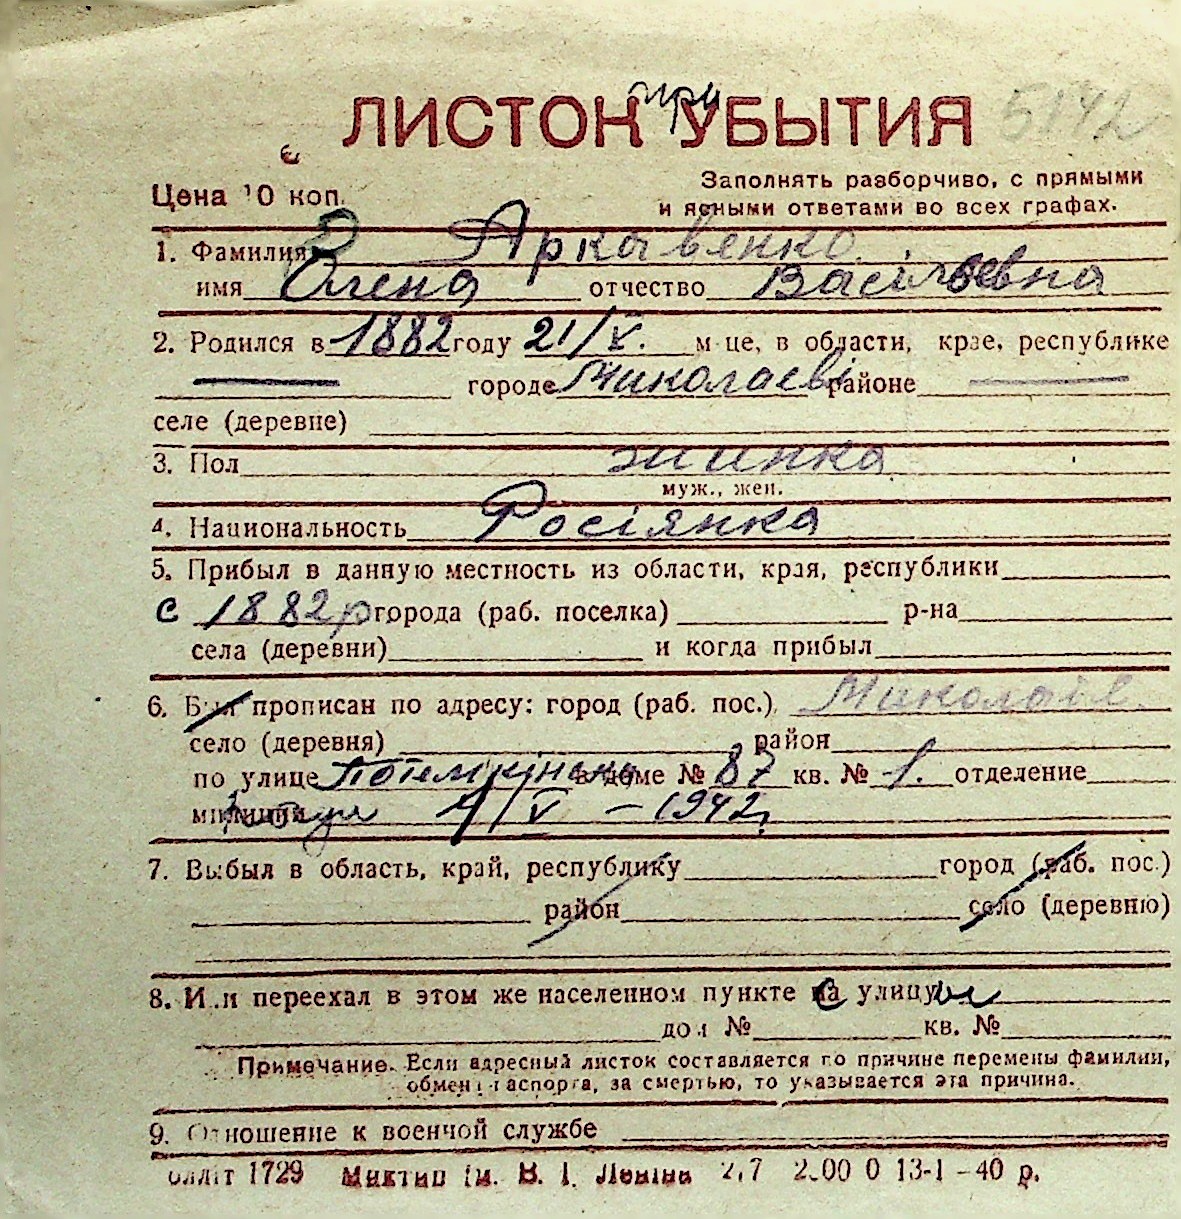 ЛИСТОК при УБЫТИЯ 5142
Цена 10 коп.
Заполнять разборчиво, с прямыми
и ясными ответами во всех графах.
1. Фамилия Аркавенко
имя Олена отчество Васільевна
2. Родился в 1882 году 21/V. м-це, в области, крае, республике
городе Миколаеві районе
селе (деревне)
3. Пол жинка
муж., жен.
4. Национальность Росіянка
5. Прибыл в данную местность из области, края, республики
с 1882 р города (раб. поселка) р-на
села (деревни) и когда прибыл
6. Был прописан по адресу: город (раб. пос.) Миколаїв
село (деревня) район
по улице Потемкінська в доме № 87 кв. № 1. отделение
милиции 4/V - 1942
7. Выбыл в область, край, республику город (раб. пос.)
район село (деревню)
8. Или переехал в этом же населенном пункте с улицы
дом № кв. №
Примечание. Если адресный листок составляется по причине перемены фамилии,
обмена паспорта, за смертью, то указывается эта причина.
9. Отношение к военной службе
1729 Миктип ім. В. І. Леніна 2.00 0 13-1-40 р.